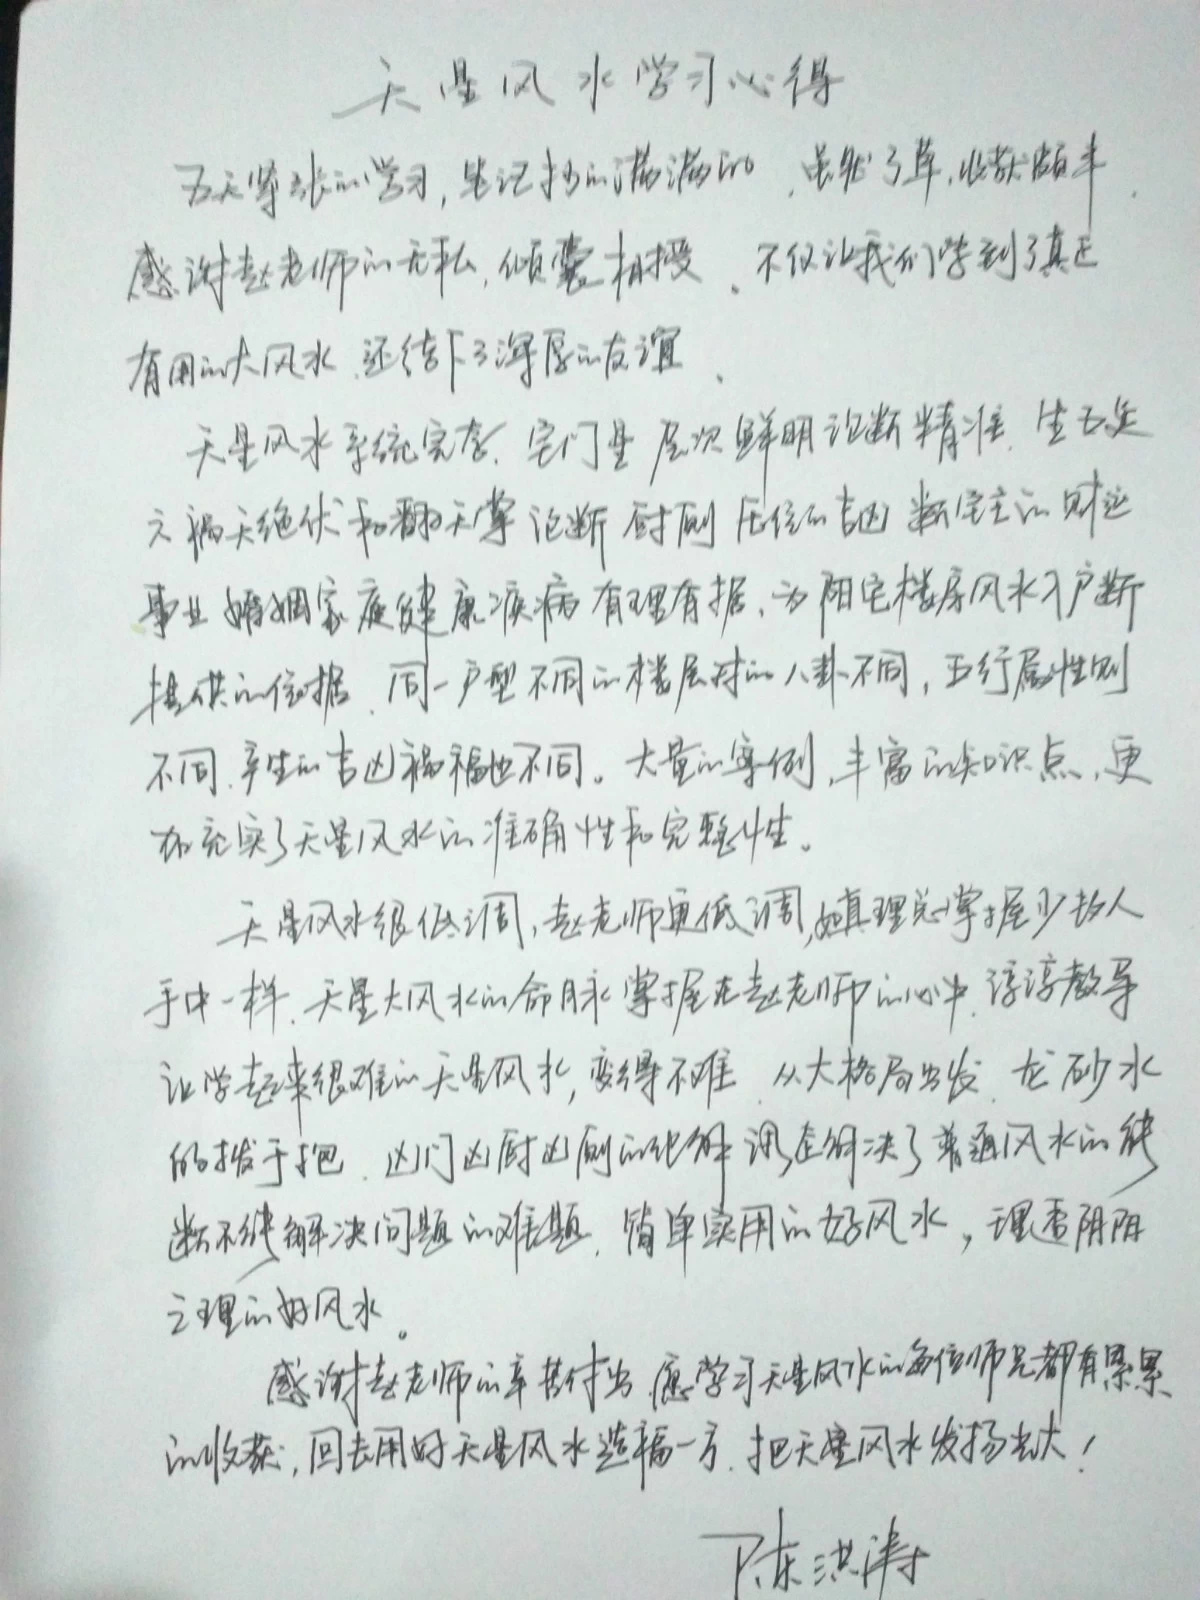 天星风水学习心得
五天紧张的学习,笔记抄的满满的、虽然了草,收获颇丰.
感谢赵老师的无私,倾囊相授。不仅让我们学到了真正
有用的大风水.还结下了深厚的友谊.
天星风水系统完善、宅门星 层次鲜明论断精准.生五延
六祸天绝伏和翻天掌论断厨厕压位的吉凶 断宅主的财运
事业婚姻家庭健康疾病有理有据、为阳宅楼房风水入户断
提供的依据.同一户型不同的楼层对的八卦不同,五行属性则
不同.产生的吉凶祸福也不同。大量的案例,丰富的知识点,更
加充实了天星风水的准确性和完整性。
天星风水很低调,赵老师更低调,如真理总掌握少数人
手中一样.天星大风水的命脉掌握在赵老师的心中.谆谆教导
让学起来很难的天星风水,变得不难.从大格局出发.龙砂水
的拨于把.凶门凶厨凶厕的化解 调解决了普通风水的能
断不能解决问题的难题.简单实用的好风水,理查阴阳
之理的好风水。
感谢赵老师的辛苦付出.愿学习天星风水的每位师兄都有累累
的收获,回去用好天星风水造福一方.把天星风水发扬光大!
陈洪涛